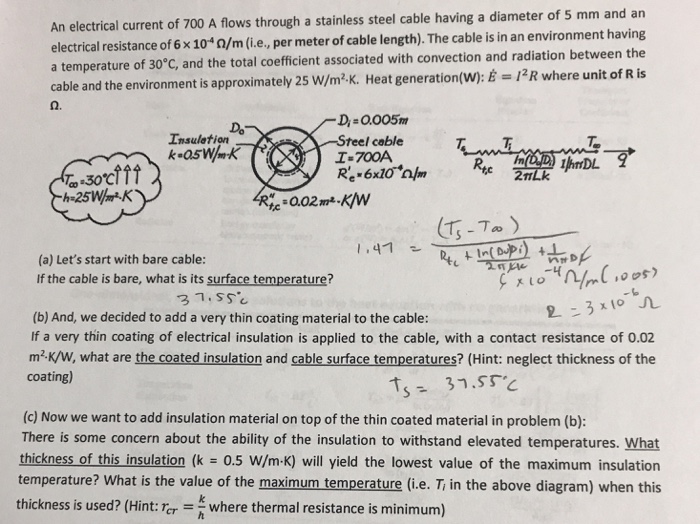 An electrical current of 700 A flows through a stainless steel cable having a diameter of 5 mm and an
electrical resistance of 6 × 10⁻⁴ Ω/m (i.e., per meter of cable length). The cable is in an environment having
a temperature of 30°C, and the total coefficient associated with convection and radiation between the
cable and the environment is approximately 25 W/m²·K. Heat generation(W): Ė = I²R where unit of R is
Ω.
T∞=30°C
h=25W/m²·K
Insulation
k=0.5W/m·K
Dₒ
Dᵢ=0.005m
Steel cable
I=700A
R'ₑ=6x10⁻⁴Ω/m
R''t,c=0.02m²·K/W
Tₛ Tᵢ T∞
Rt,c ln(Dₒ/Dᵢ)/2πLk 1/hπDL q
1.47 = (Ts - T∞)
Rtc + ln(Do/Di)/2πLk + 1/
(a) Let's start with bare cable:
If the cable is bare, what is its surface temperature?
37.55°C
× 10⁻⁴ Ω/m(.005)
R = 3×10⁻⁶ Ω
(b) And, we decided to add a very thin coating material to the cable:
If a very thin coating of electrical insulation is applied to the cable, with a contact resistance of 0.02
m²·K/W, what are the coated insulation and cable surface temperatures? (Hint: neglect thickness of the
coating)
Ts = 37.55°C
(c) Now we want to add insulation material on top of the thin coated material in problem (b):
There is some concern about the ability of the insulation to withstand elevated temperatures. What
thickness of this insulation (k = 0.5 W/m·K) will yield the lowest value of the maximum insulation
temperature? What is the value of the maximum temperature (i.e. Tᵢ in the above diagram) when this
thickness is used? (Hint: r_cr = k/h where thermal resistance is minimum)